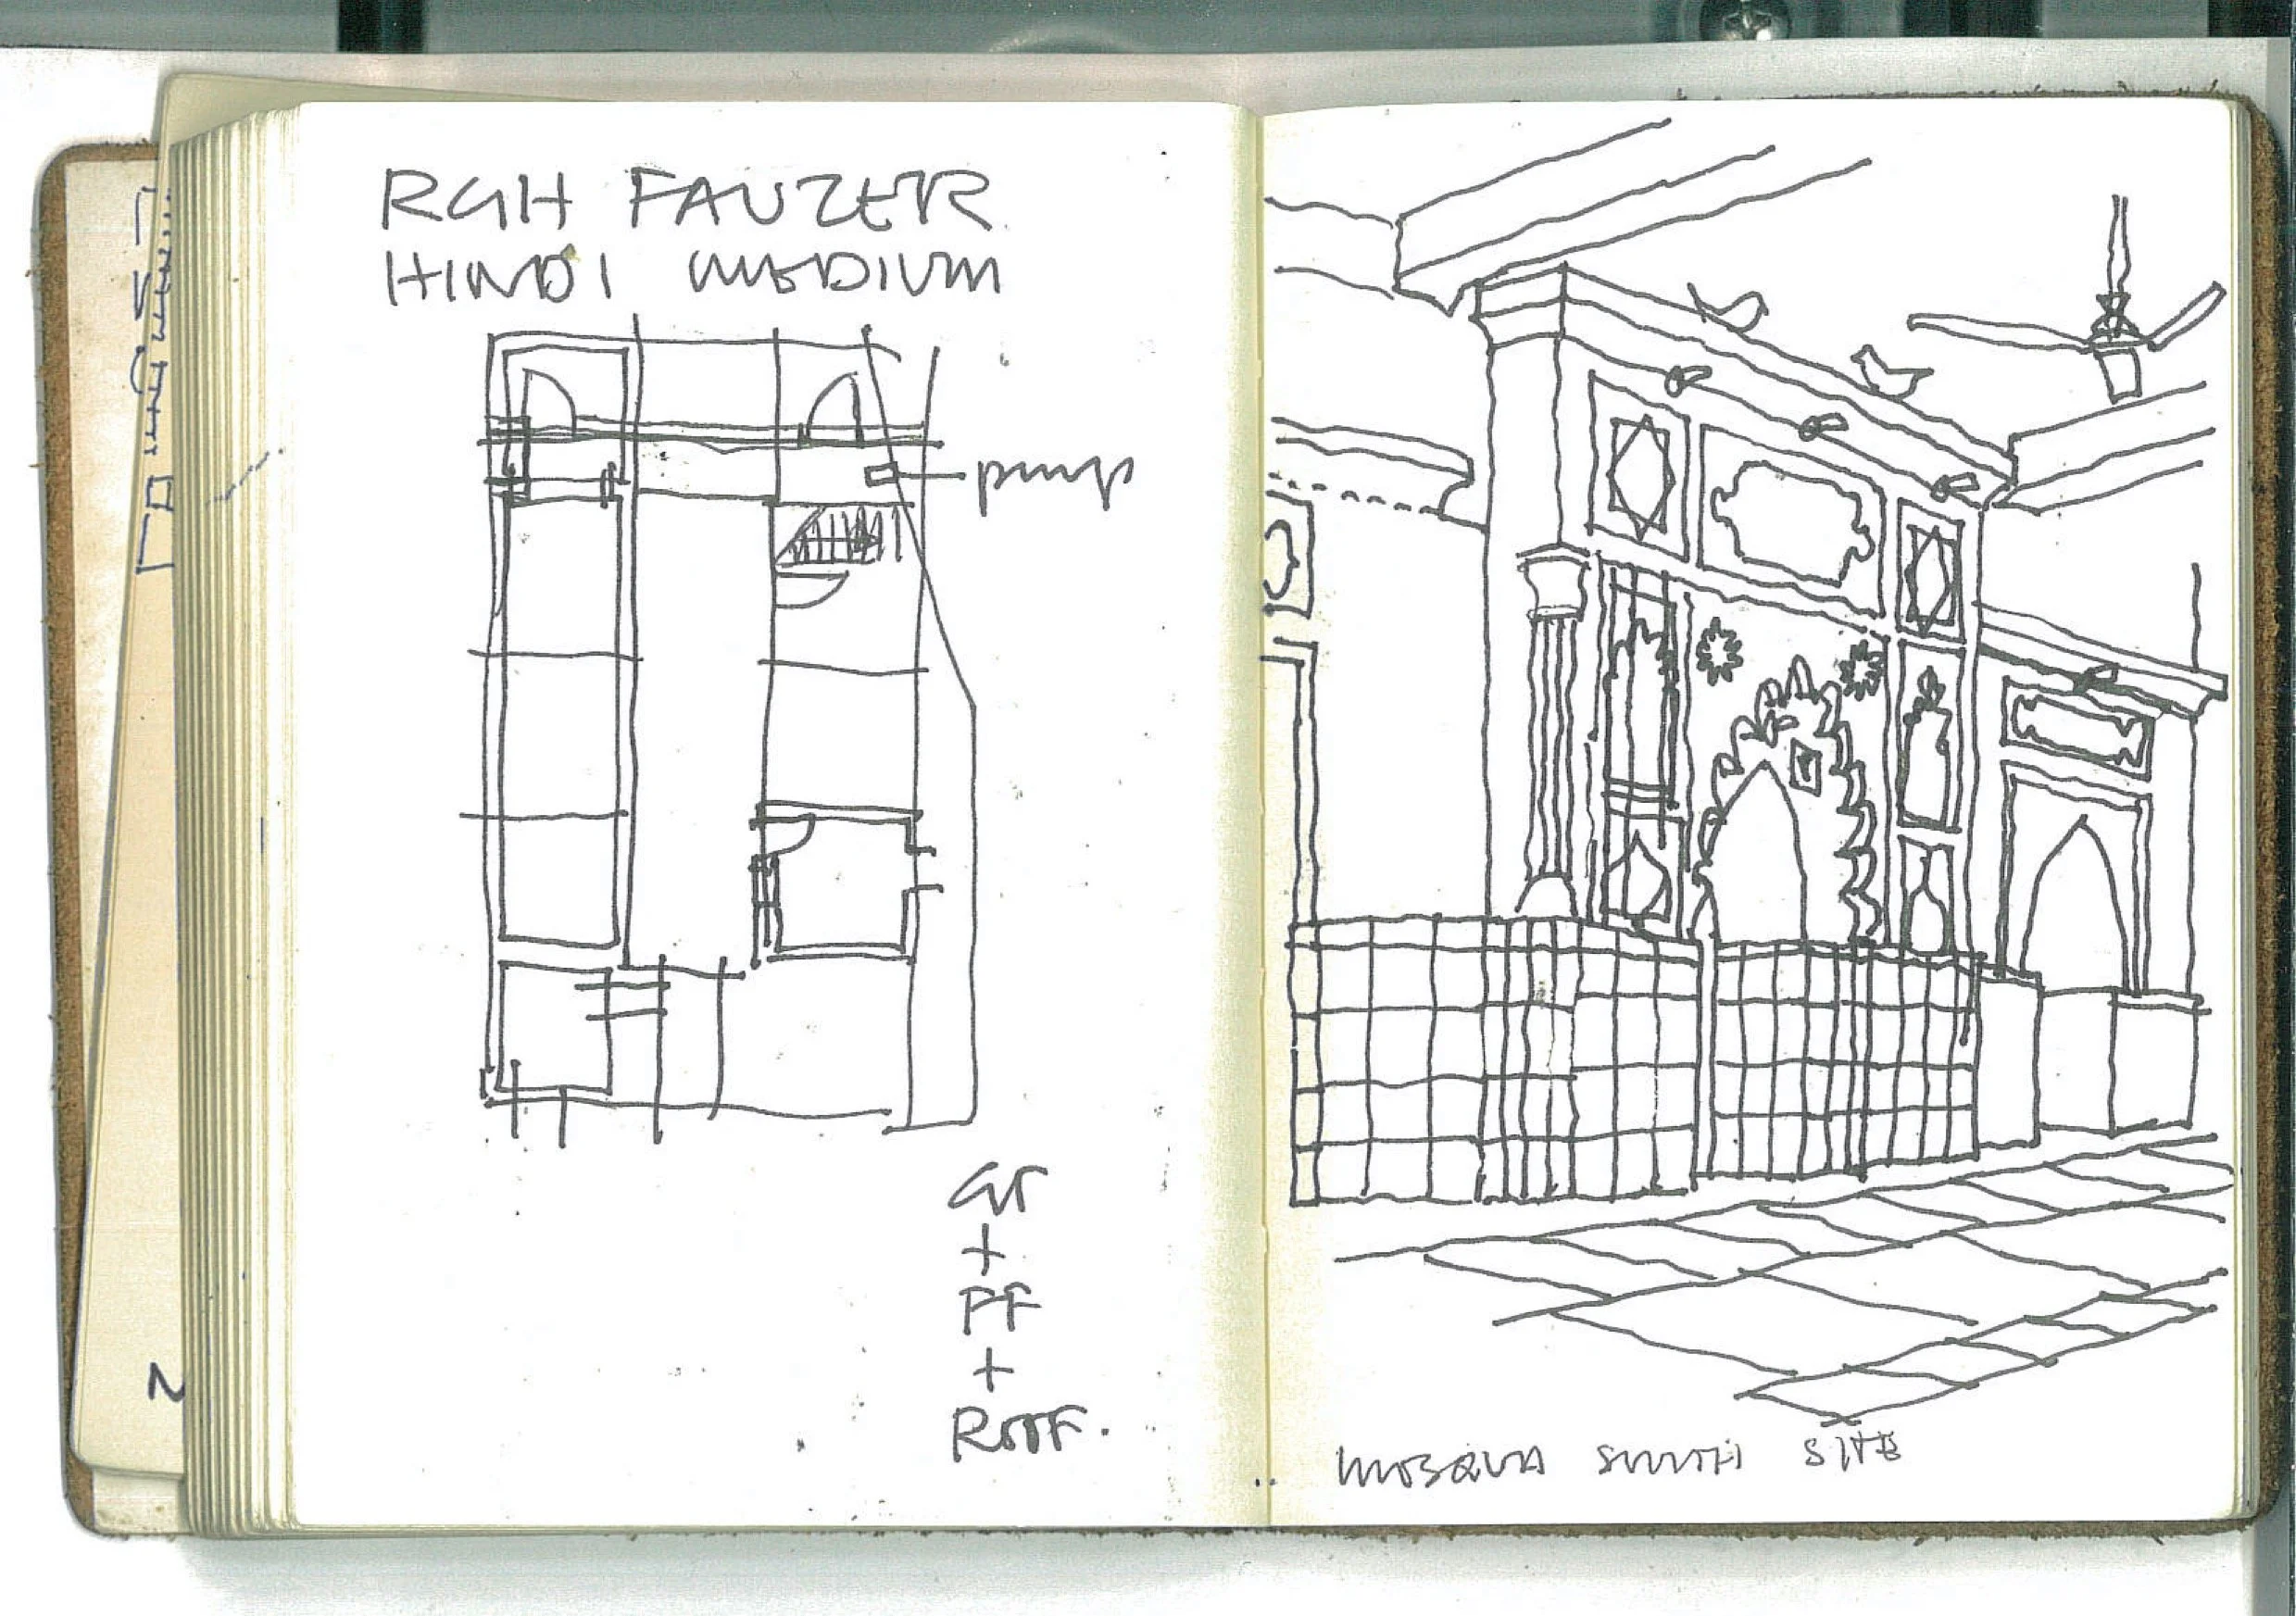 RGH FAUZER
HINDI MEDIUM
pump
GF
+
FF
+
ROOF.
MOSQUA SOUTH SITE
2